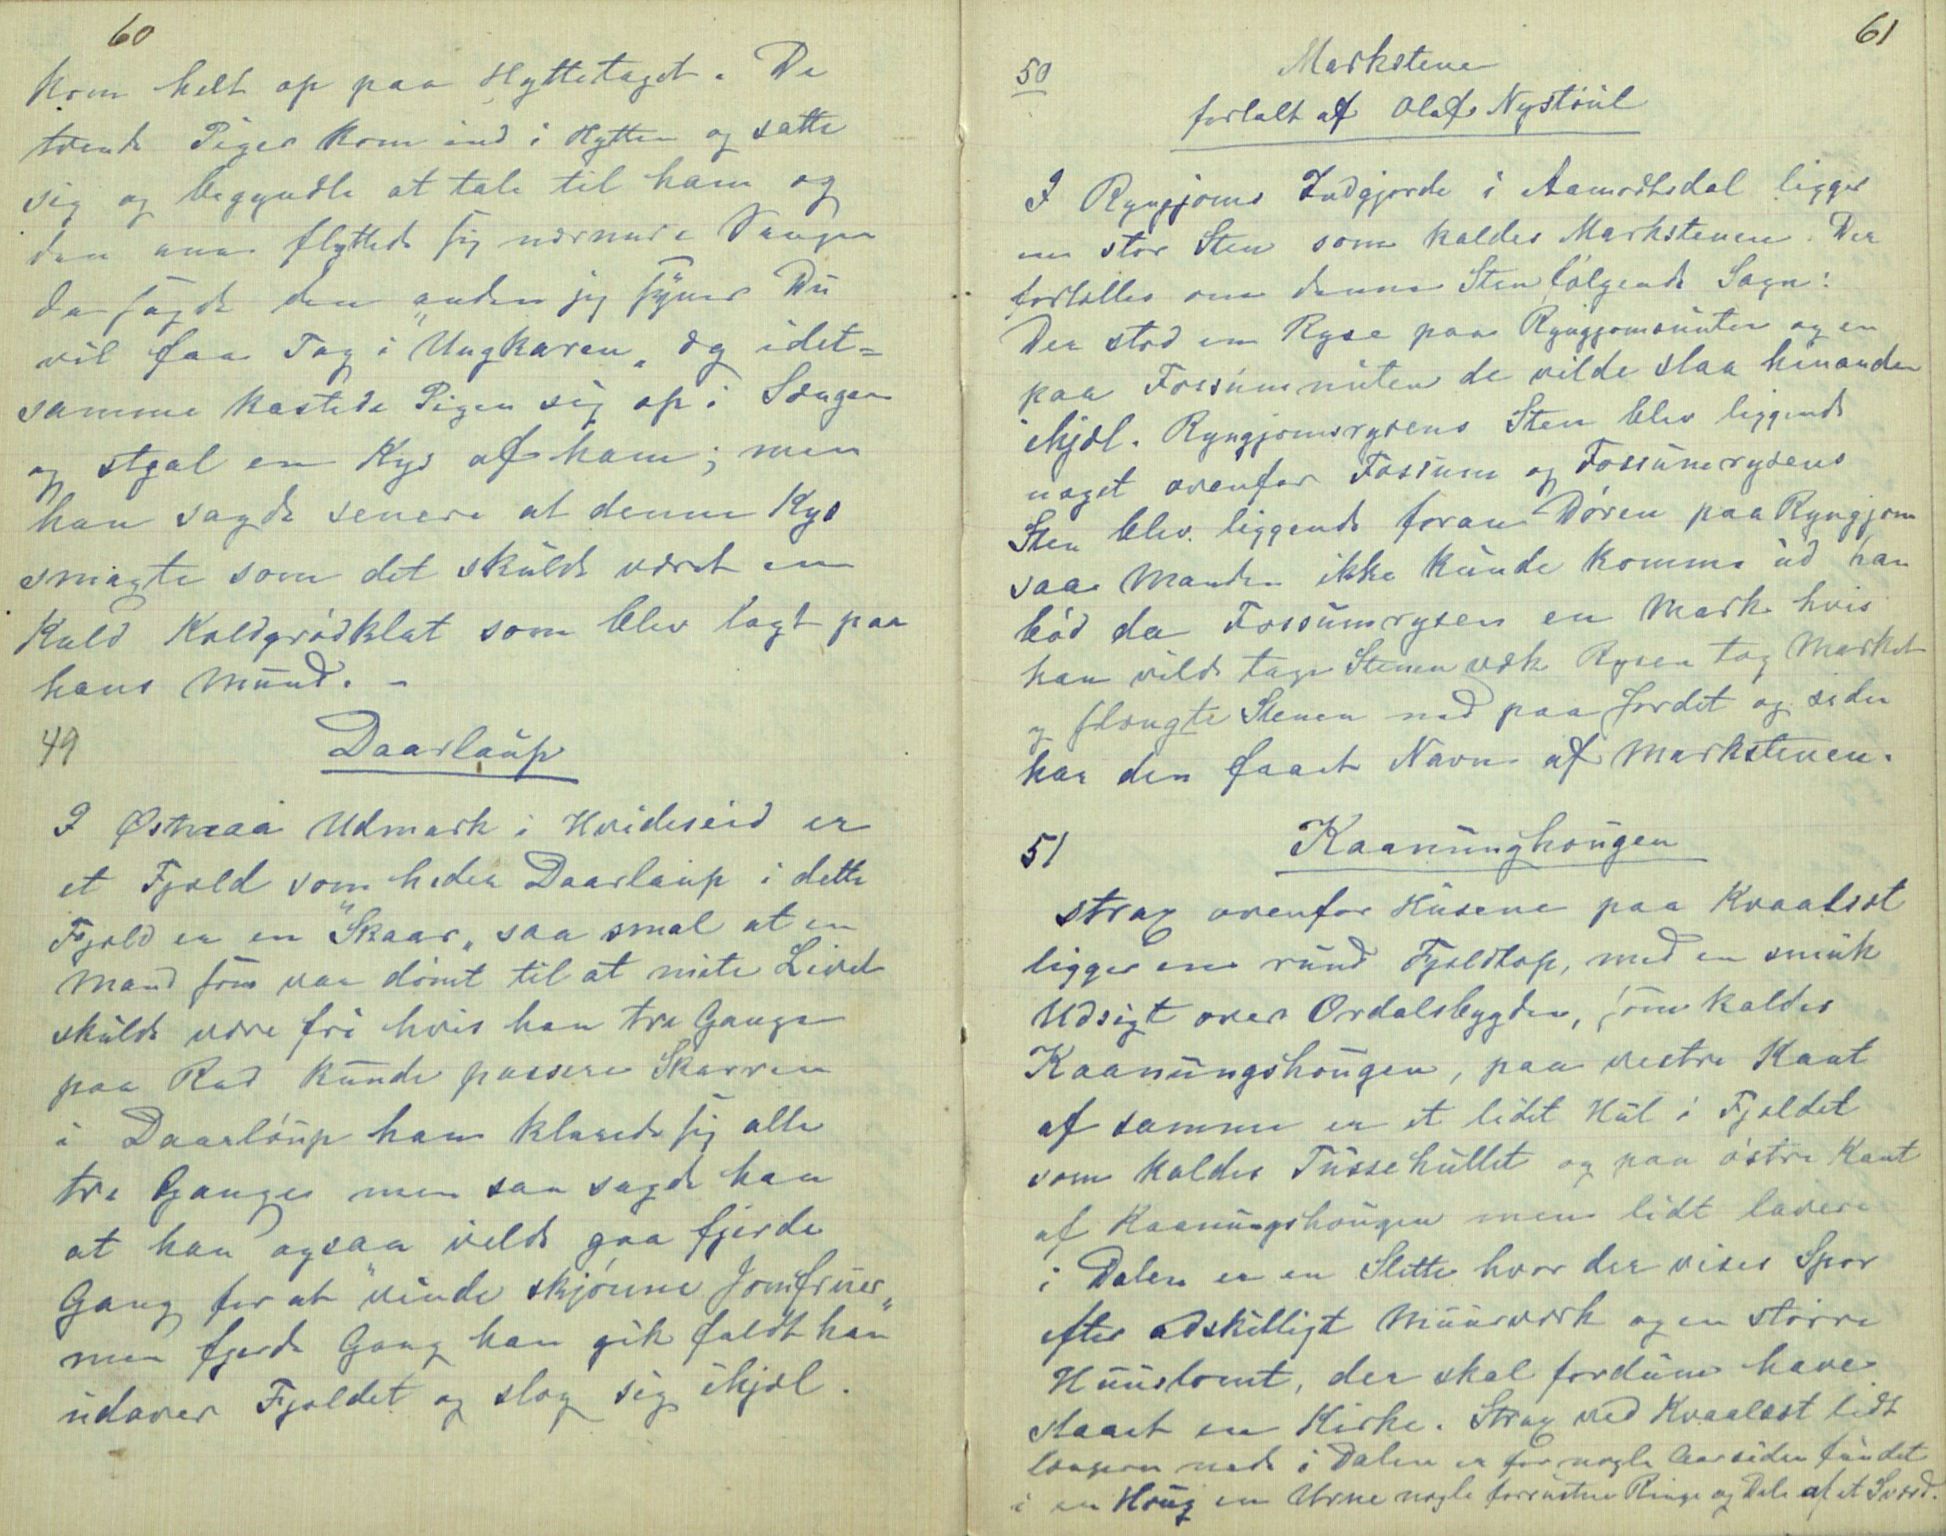 60
kom helt op paa Hyttetaget. De
tvende Piger kom ind i Hytten og satte
sig og begyndte at tale til ham og
den ene flyttede sig nærmere Sengen
da sagde den anden jeg synes Du
vil faa Tag i "Ungkaren" og idet=
samme kastede Pigen sig op i Sengen
og stjal en Kys af ham; men
han sagde senere at denne Kys
smagte som det skulde været en
Kald Koldgrødklat som blev lagt paa
hans Mund. -
49 Daarlaup
I Østraaa Udmark i Hvideseid er
et Fjeld som heder Daarlaup i dette
Fjeld er en "Skaar" saa smal at en
Mand som var dømt til at miste Livet
skulde være fri hvis han tre Gange
paa Rad kunde passere Skarren
i Daarløup han klarede sig alle
tre Ganger men saa sagde han
at han ogsaa vilde gaa fjerde
Gang for at "vinde skjønne Jomfruer"
men fjerde Gang han gik faldt han
udover Fjeldet og slog sig ihjel.
61
50 Markstene
fortalt af Olaf Nystøul
I Ryngjoms Indgjerde i Aamodtsdal ligger
en stor Sten som kaldes Markstenen. Der
fortælles om denne Sten følgende Sagn:
Der stod en Ryse paa Ryngjomsnuten og en
paa Fossumnuten de vilde slaa hinanden
ihjel. Ryngjomsrysens Sten blev liggende
noget ovenfor Fossum og Fossumrysens
Sten blev liggende foran Døren paa Ryngjom
saa Manden ikke kunde komme ud han
bød da Fossumrysen en Mark hvis
han vilde tage Stenen væk Rysen tog Market
og slængte Stenen ned paa Jordet og siden
har den faaet Navn af Markstenen.
51 Kaanunghougen
Strax ovenfor Husene paa Kvaalsot
ligger en rund Fjeldtop, med en smuk
Udsigt over Ordalsbygden, som kaldes
Kaanungshougen, paa vestre Kant
af samme er et lidet Hul i Fjeldet
som kaldes Tussehullet og paa østre Kant
af Kaanungshougen men lidt lavere
i Dalen er en Slette hvor der vises Spor
efter adskilligt Muurværk og en større
Huustomt, der skal fordum have
staaet en Kirke. Strax ved Kvaalsot lidt
længere nede i Dalen er for nogle Aar siden fundet
i en Houg en Urne nogle forrustne Ringe og Dele af et Sværd.